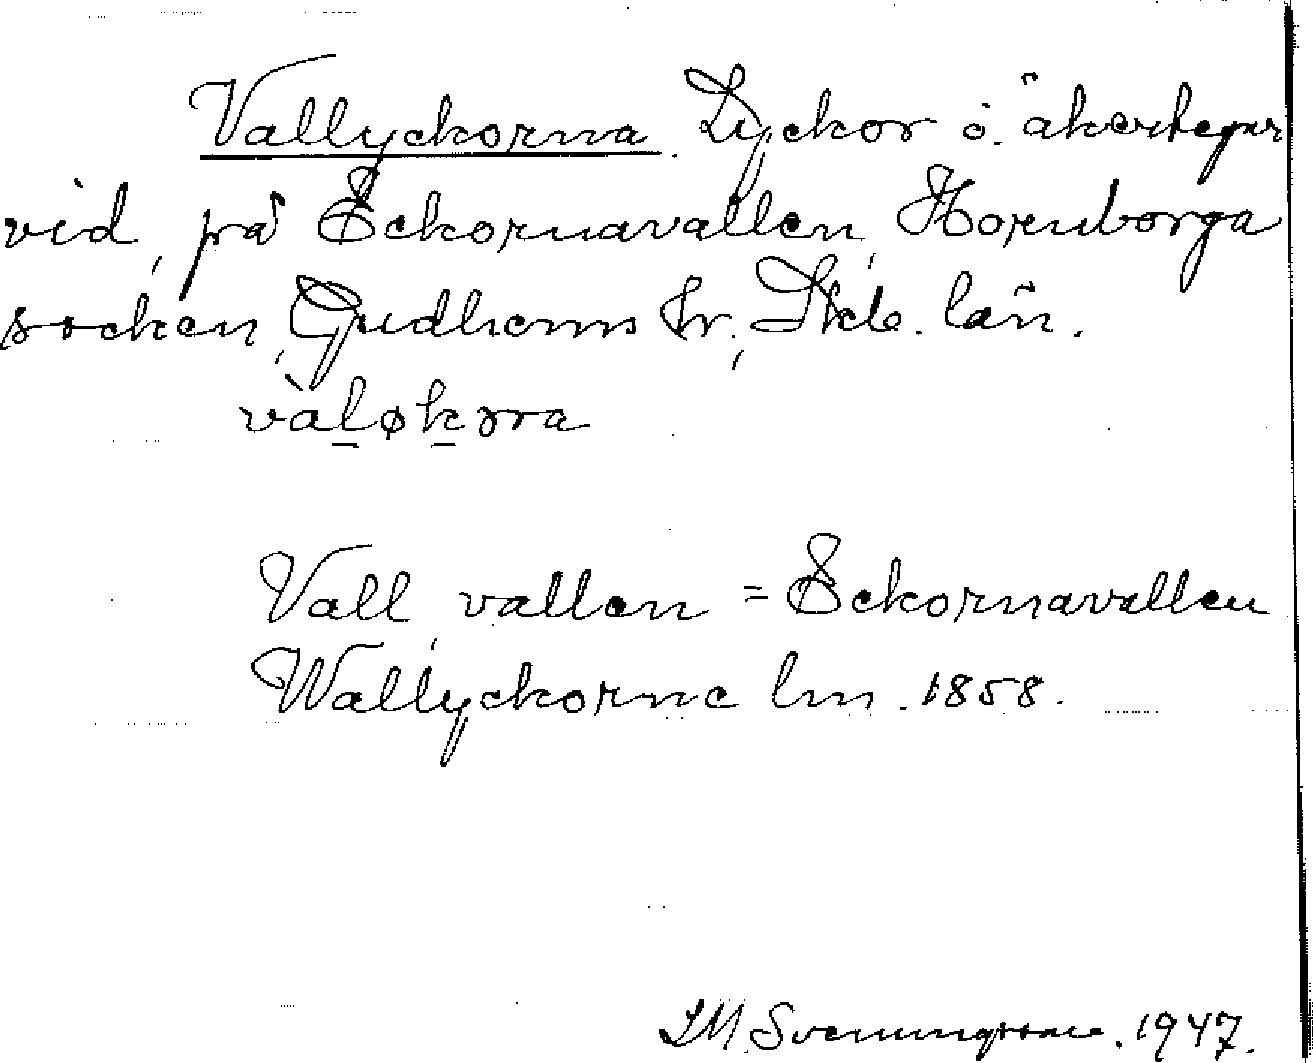 Vallyckorna. Lyckor o. åkertegar
vid, på Eckornavallen, Hornborga
socken, Gudhems hr, Skb. län.
vàl̠øk̠ɔra
Vall, vallen = Eckornavallen
Wallyckorne lm. 1858.
I.M. Svenungsson. 1947.